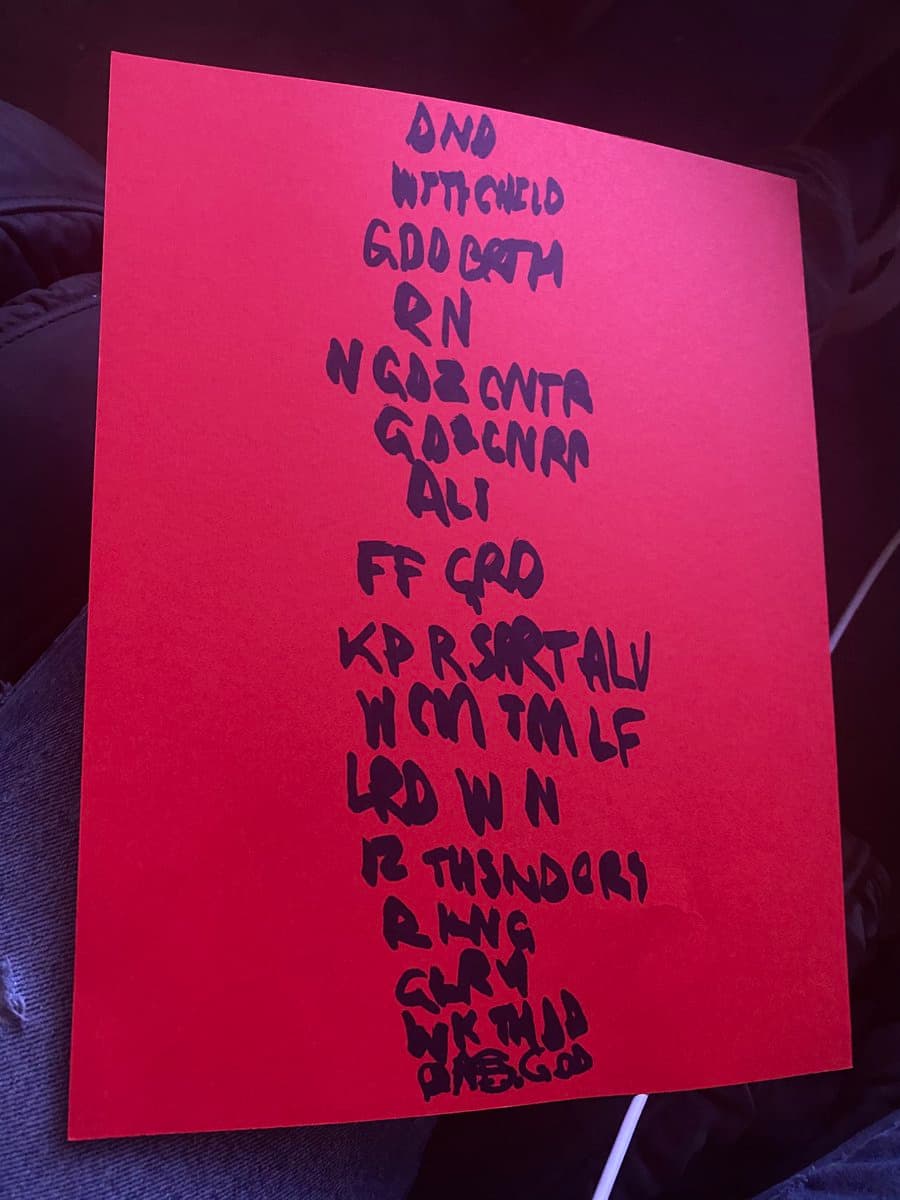 DND
WTTHCHILD
GDD BRTH
RN
N GDZ CNTR
GDZCNRR
ALI
FF GRD
KP R SPRT ALV
W CM TM LF
LRD W N
R THSNDCRY
R KNG
GLRY
WK THDD
GOD